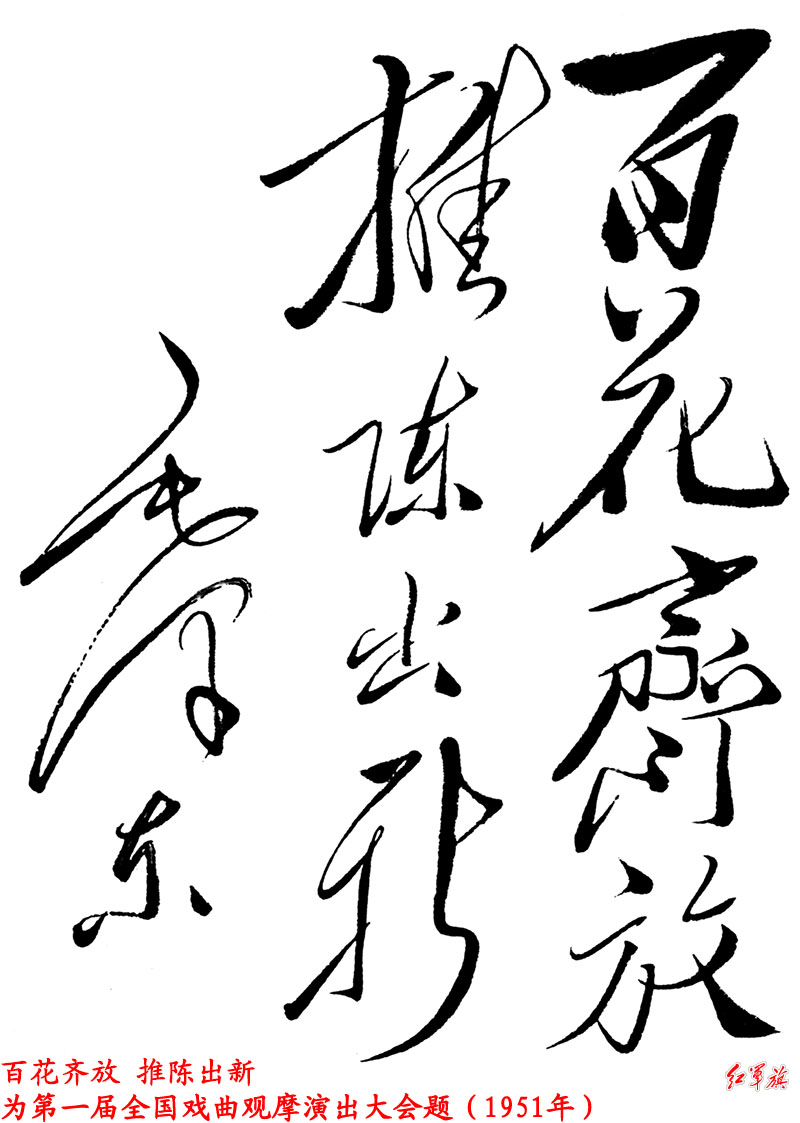 百花齊放
推陈出新
毛泽东
百花齐放 推陈出新
为第一届全国戏曲观摩演出大会题（1951年）
红军旗